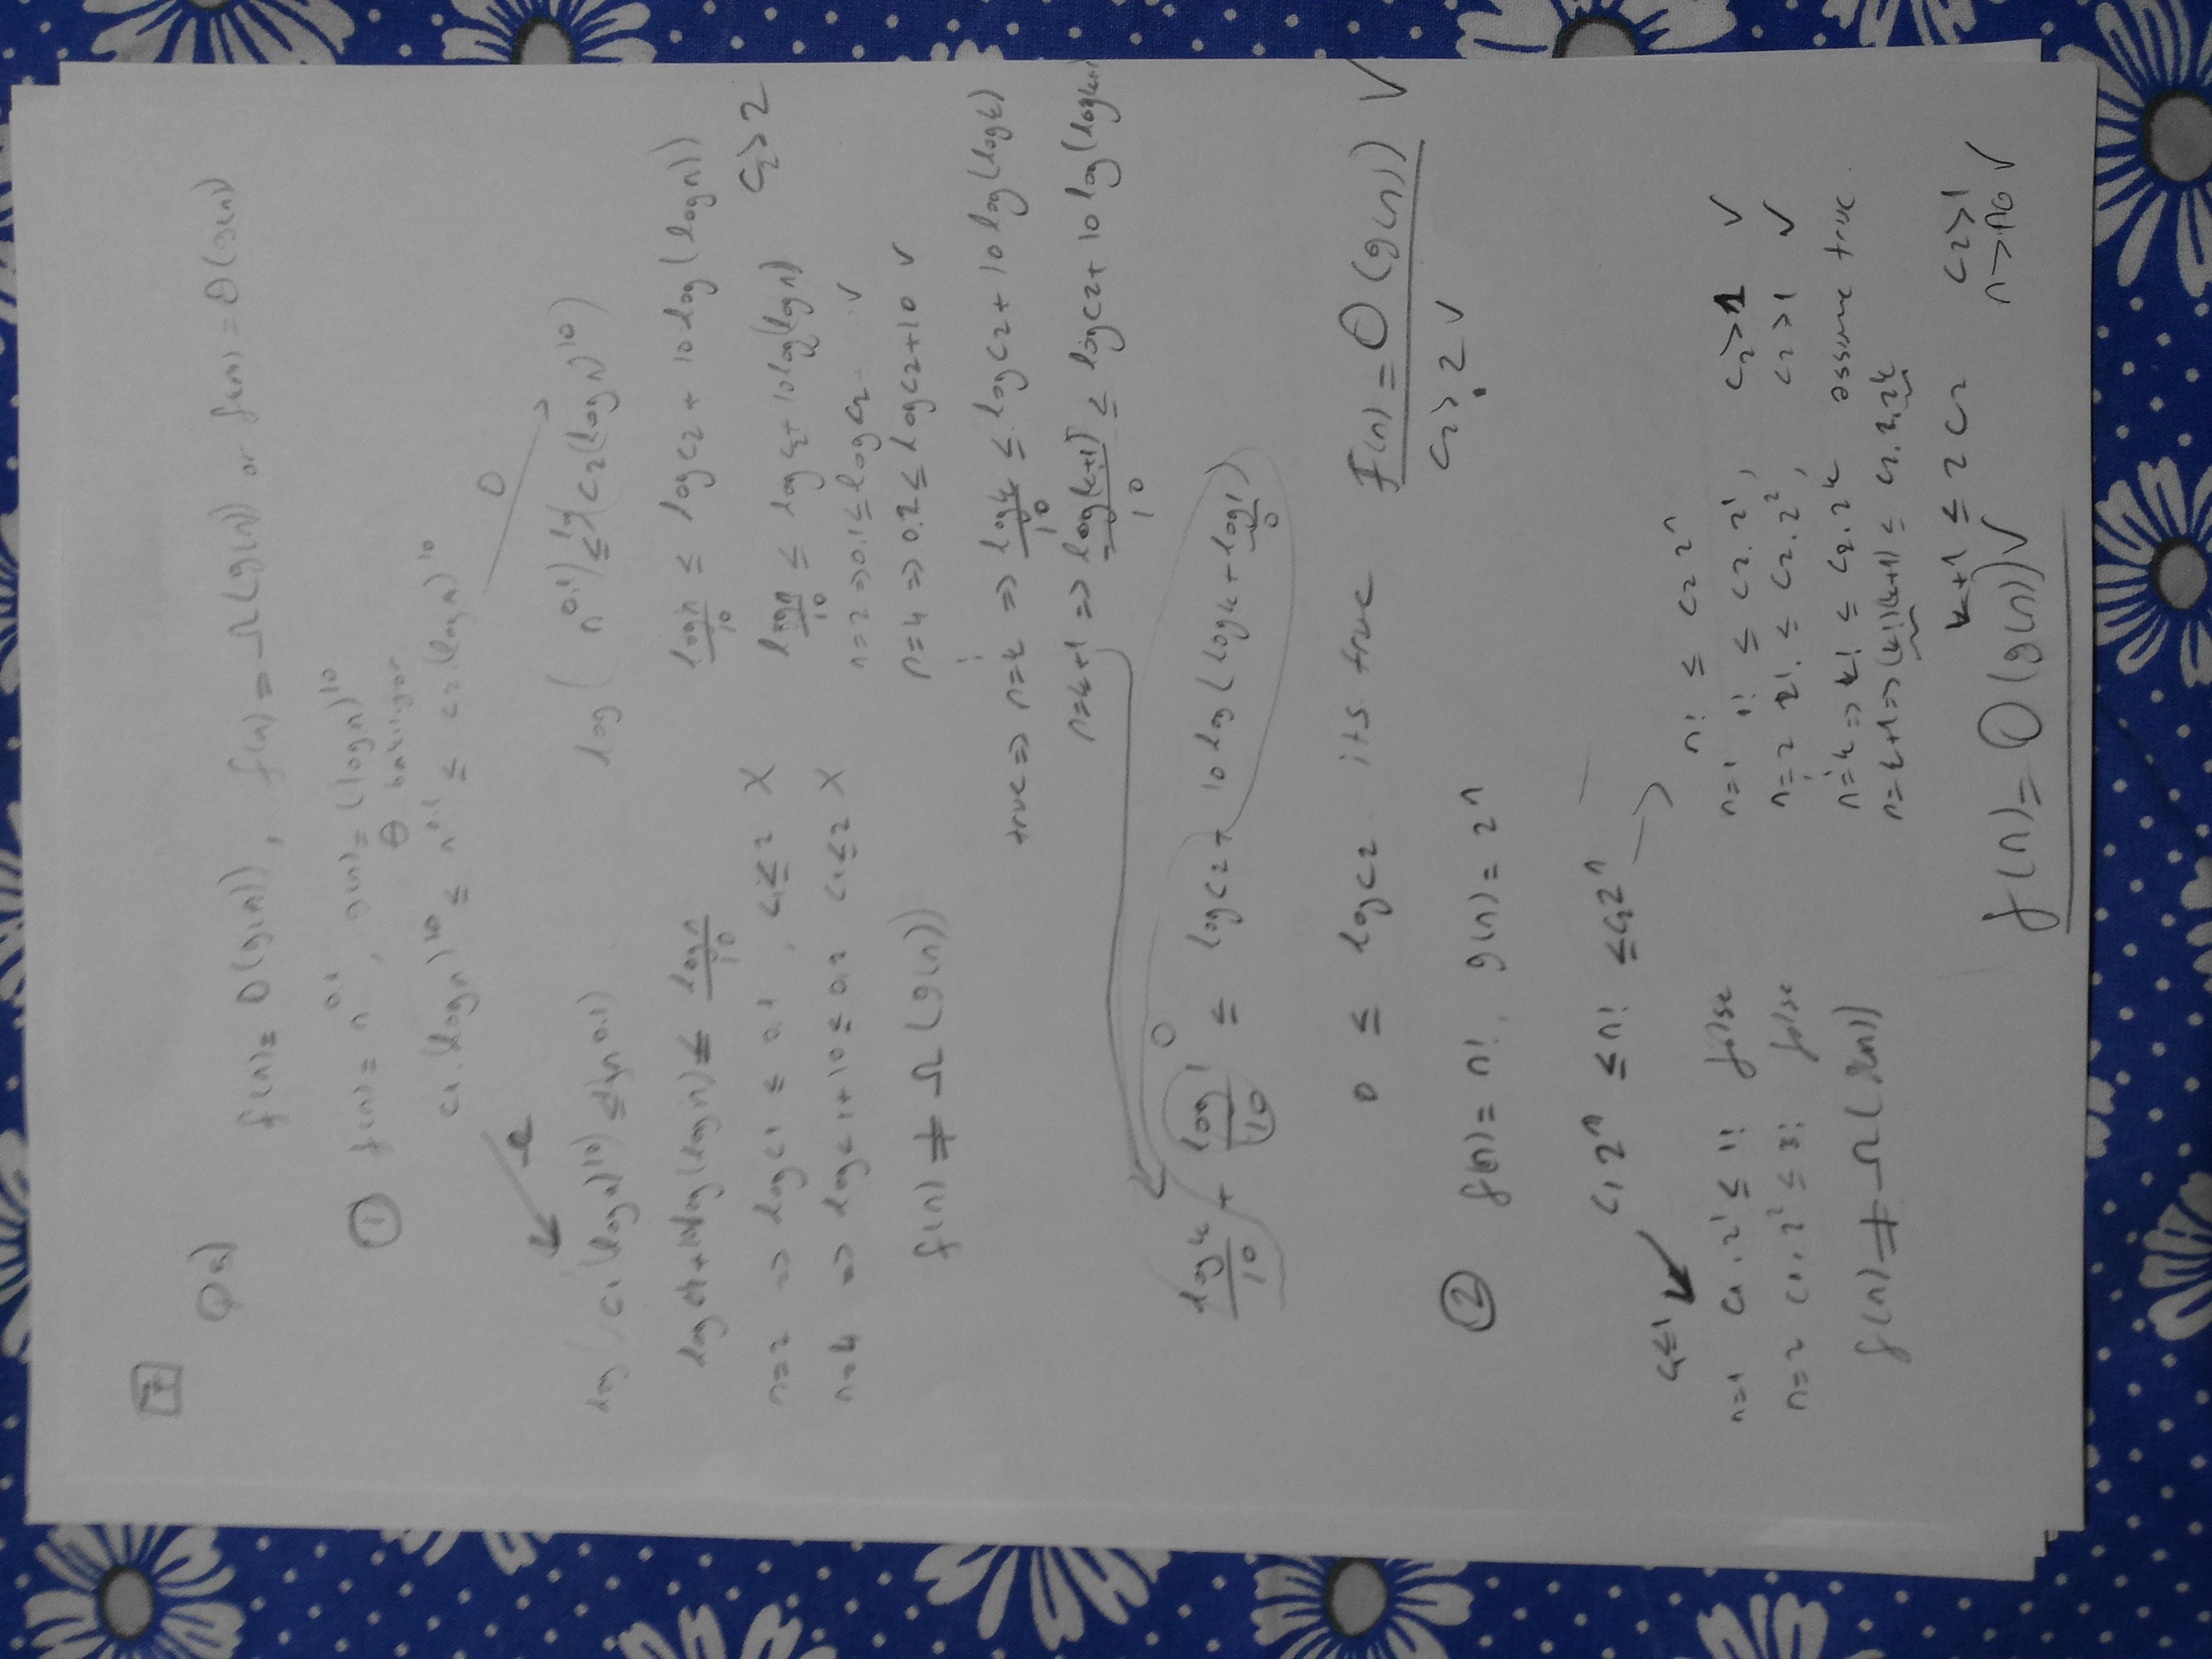 7
Q a)
f(n) = O(g(n)), f(n) = Ω(g(n)) or f(n) = Θ(g(n))
① f(n) = n^0.1, g(n) = (log n)^10
Θ bakılıyor
c1.(log n)^10 ≤ n^0.1 ≤ c2.(log n)^10
Ω
log(c1(log n)^10) ≤ log(n^0.1)
log c1 + 10 log(log n) ≤ log n / 10
n=2 => log c1 ≤ 0.1, c1 ≤ 2 X
n=4 => log c1 + 10 ≤ 0.2 c1 ≤ 2 X
f(n) ≠ Ω(g(n))
O
log(n^0.1) ≤ log(c2(log n)^10)
log n / 10 ≤ log c2 + 10 log(log n))
c2 > 2
log n / 10 ≤ log c2 + 10 log(log n)
n=2 => 0.1 ≤ log c2 ✓
n=4 => 0.2 ≤ log c2 + 10 ✓
⋮
true => n=k => log k / 10 ≤ log c2 + 10 log(log k)
n=k+1 => log(k+1) / 10 ≤ log c2 + 10 log(log k+1
log k / 10 + log 1 / 10 0 ≤ log c2 + 10 log(log k + log 1) 0
0 ≤ log c2 its true
F(n) = O(g(n)) ✓
c2 > 2 ✓
② f(n) = n!, g(n) = 2^n
c1 2^n ≤ n! ≤ c2 2^n
c1 ≤ 1
n=1 c1.2^1 ≤ 1! false
n=2 c1.2^2 ≤ 3! false
f(n) ≠ Ω(g(n))
n! ≤ c2 2^n
n=1 1! ≤ c2.2^1, c2 > 1 ✓
n=2 2! ≤ c2.2^2, c2 > 1 ✓
⋮
n=k => k! ≤ c2.2^k assume true.
n=k+1 => (k!)(k+1) ≤ c2.2.2^k
k+1 ≤ 2 c2 c2 > 1
n > n0 ✓
f(n) = O(g(n)) ✓